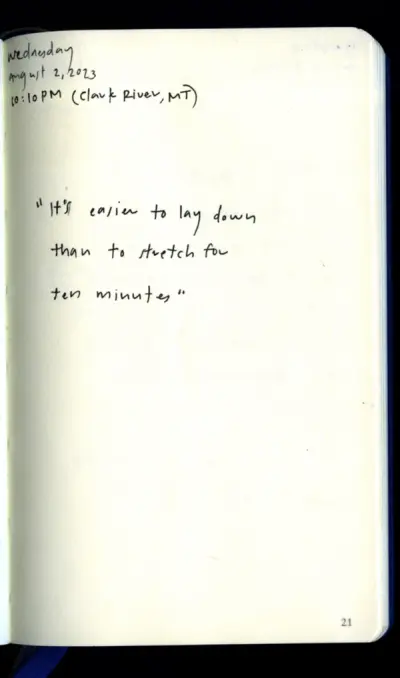 Wednesday
August 2, 2023
10:10 PM (Clark River, MT)
"It's easier to lay down
than to stretch for
ten minutes"
21